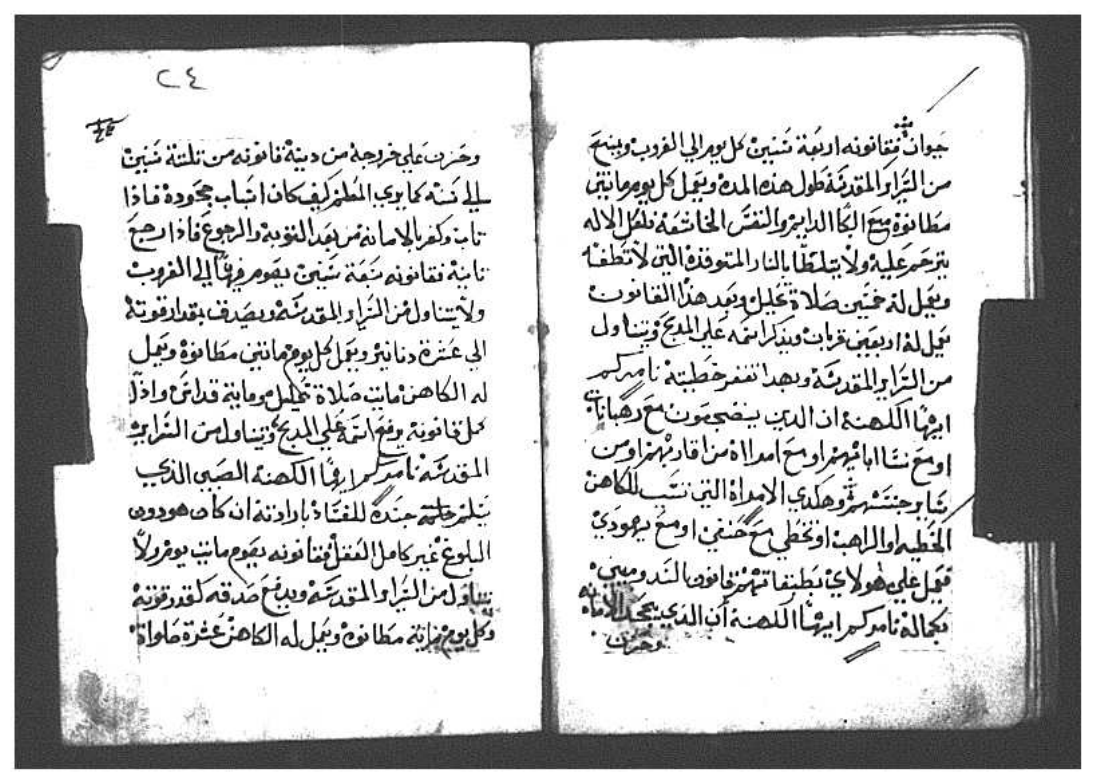 جوان فقانونه اربعة سنين كل يوم الي الغروب ويمنع
من السراير المقدسة طول هذه المدة ويعمل كل يوم مايتين
مطانوة مع البكا الدايم والنفس الخاشعه فلعل الاله
يترحم عليه ولا يتلظا بالنار المتوقده التي لا تطفا
ويعمل له خمسين صلاة تحليل وبعد هذا القانون
يعمل له اربعين قربان ويذكر اسمه علي المدبح ويتناول
من السراير المقدسة وبهدا تغفر خطيته نامركم
ايها الكهنة ان الدين ينضجعون مع رهبانات
او مع نسا ابايهم او مع امرااة من اقاربهم او من
ساير جنسهم وهكدي الامراة التي تسبب للكاهن
الخطيه او الراهب او تخطي مع حنفي او مع يهودي
فيعمل علي هولاي بطبقاتهم قانون الندوميين
بكماله نامركم ايها الكهنة ان الذي يجحد الامانه
وحزن
٢٤
وحزن علي خروجه من دينه قانونه من تلتة سنين
الي ستة كما يري المطران كيف كان اسباب جحوده فاذا
تاب وكفر بالامانه من بعد التوبه والرجوع فاذا رجع
تانية فقانونه سبعة سنين يصوم فيها الي الغروب
ولا يتناول من السراير المقدسة ويصدق بمقدار قوته
الي عشرة دنانير ويعمل كل يوم مايتين مطانوة ويعمل
له الكاهن مايت صلاة تحليل وماية قداس واذا
كمل قانونه يرفع اسمه علي المدبح ويتناول من السراير
المقدسة نامركم ايها الكهنة الصبي الذي
يسلم جسده للفساد بارادته ان كان هو دون
البلوغ غير كامل العقل فقانونه يصوم مايت يوم ولا
يتناول من السراير المقدسة ويدفع صدقه كقدر قوته
وكل يوم ماية مطانوه ويعمل له الكاهن عشرة صلواة